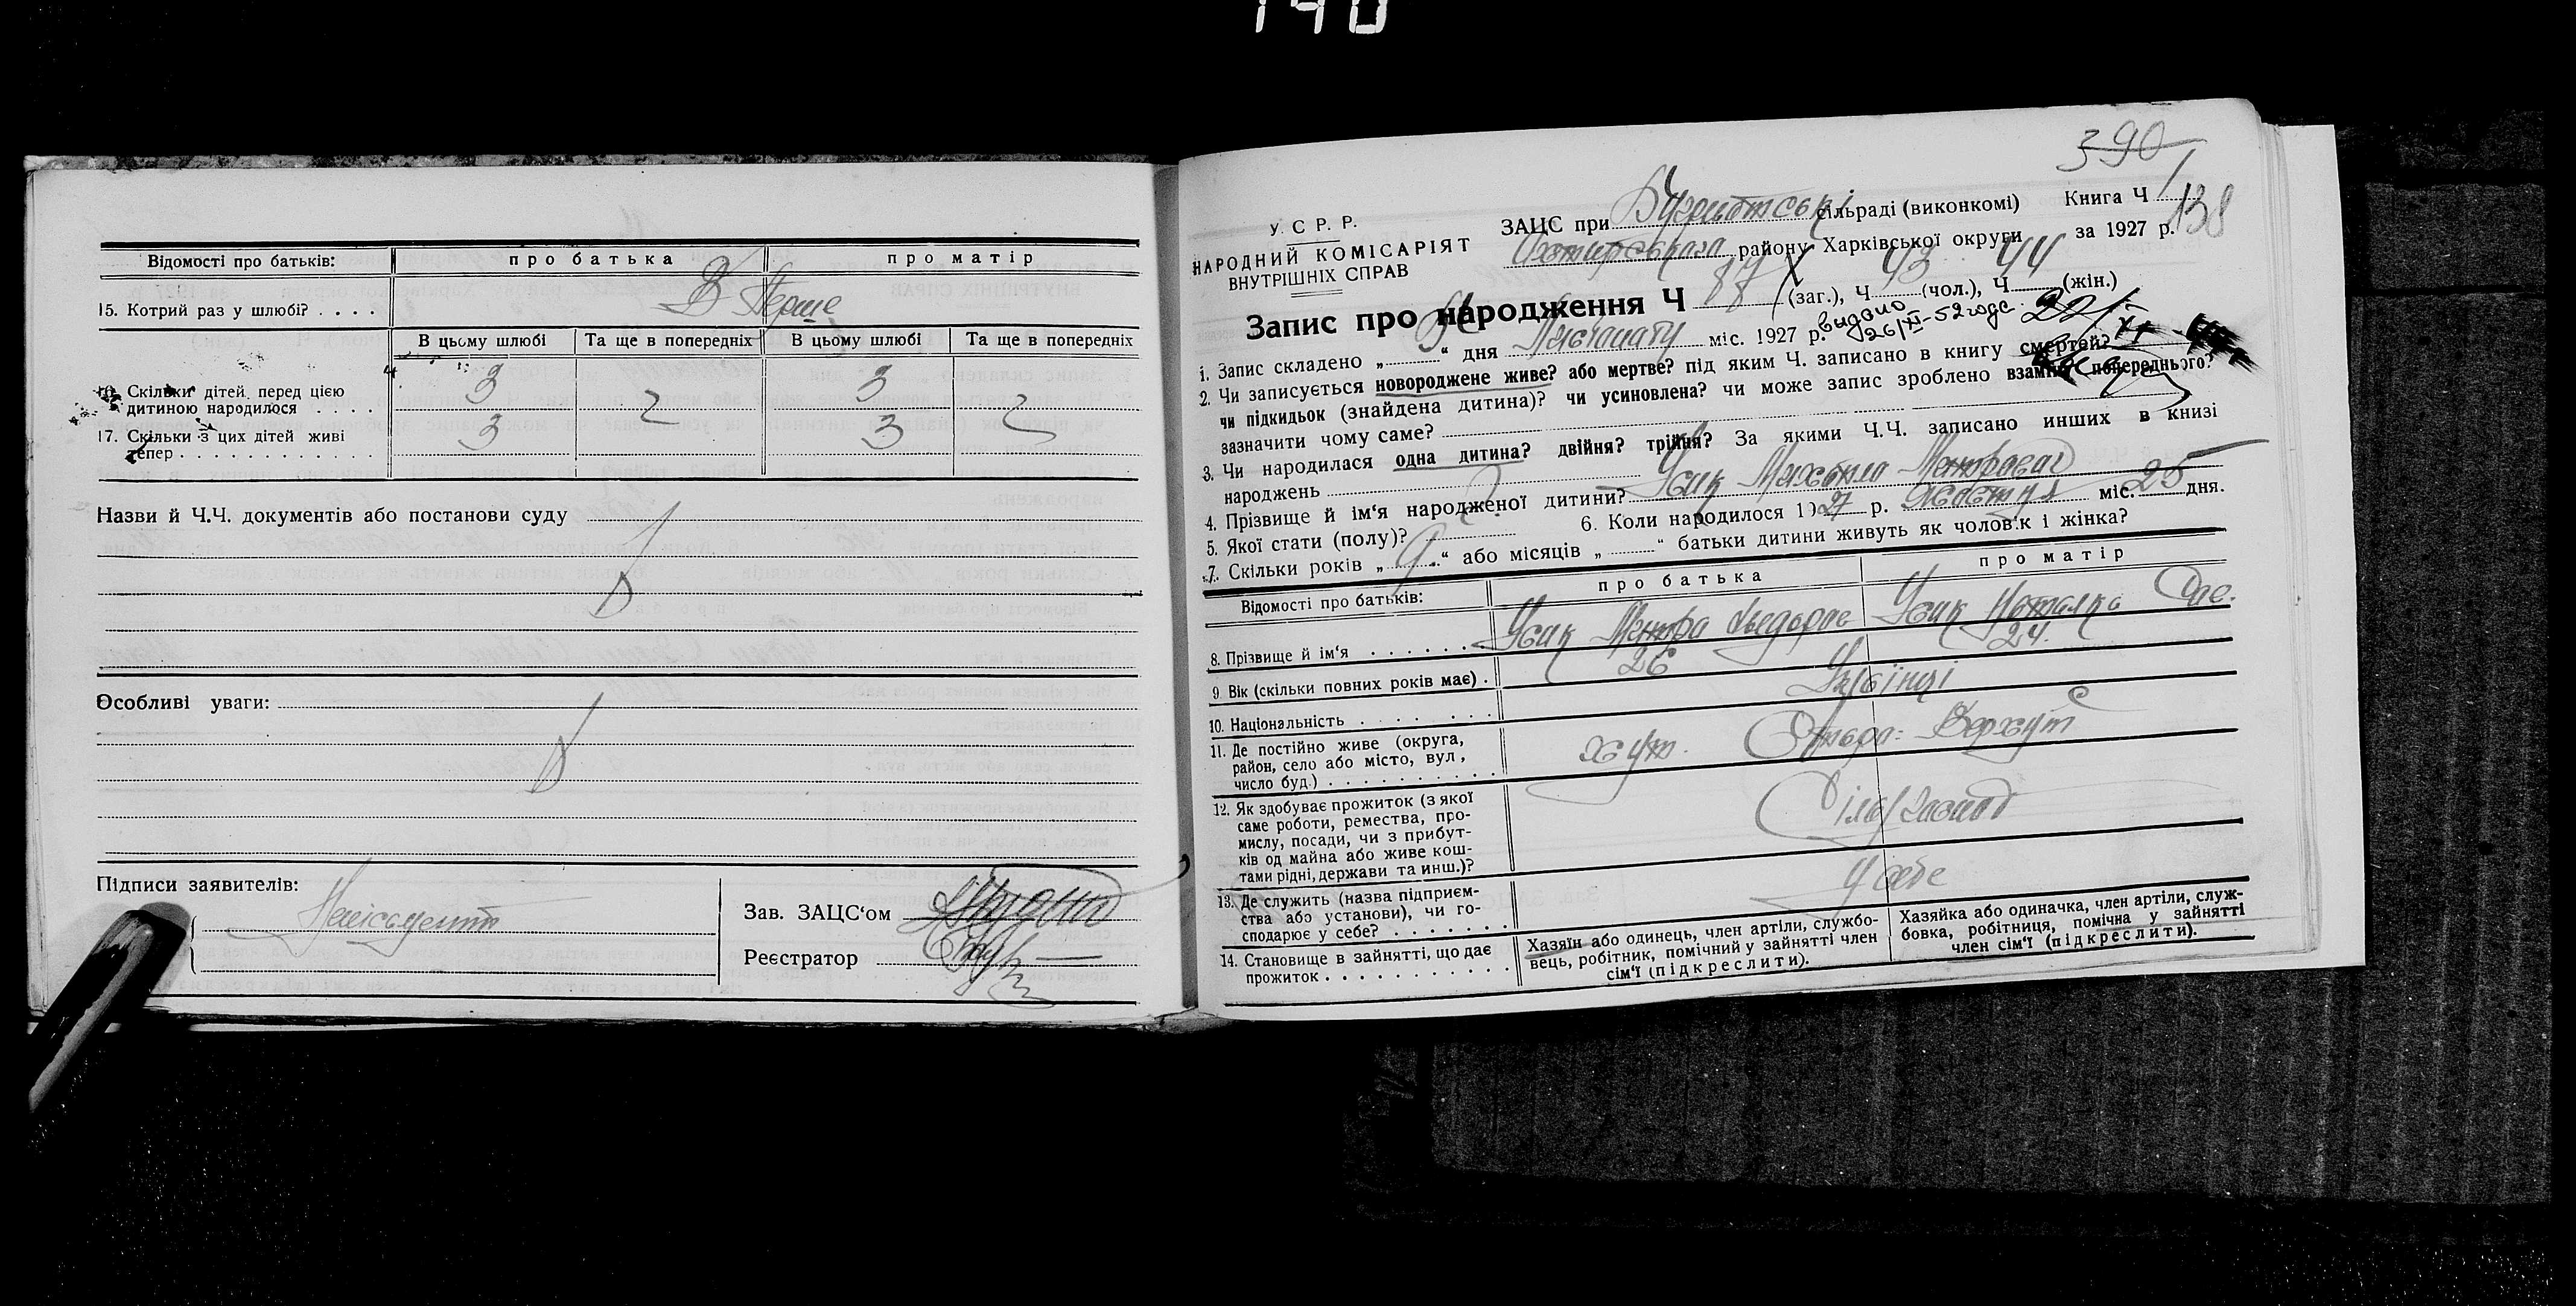 140
Відомості про батьків: про батька про матір
15. Котрий раз у шлюбі? . . . . В Перше
В цьому шлюбі Та ще в попередніх В цьому шлюбі Та ще в попередніх
16. Скільки дітей перед цією
дитиною народилося . . . . 3 3
17. Скільки з цих дітей живі
тепер . . . . . . . . . . . . 3 3
Назви й Ч.Ч. документів або постанови суду
Особливі уваги:
Підписи заявителів:
Неписьменна
Зав. ЗАЦС‘ом
Реєстратор
390
У. С Р. Р.
НАРОДНИЙ КОМІСАРІЯТ
ВНУТРІШНІХ СПРАВ
ЗАЦС при сільраді (виконкомі) Книга Ч 138
району Харківської округи за 1927 р.
Запис про народження Ч 87 (заг.), Ч 43 (чол.), Ч 44 (жін.)
видано
26/XI-52 года
1. Запис складено „ “ дня Листопату міс. 1927 р.
2. Чи записується новороджене живе? або мертве? під яким Ч. записано в книгу смертей?
чи підкидьок (знайдена дитина)? чи усиновлена? чи може запис зроблено взамін попереднього?
зазначити чому саме?
3. Чи народилася одна дитина? двійня? трійня? За якими Ч.Ч. записано инших в книзі
народжень
4. Прізвище й ім‘я народженої дитини? Усик Михайло
5. Якої стати (полу)? Ч. 6. Коли народилося 1927 р. міс. 25 дня.
7. Скільки років „ 9 “ або місяців „ “ батьки дитини живуть як чолов.к і жінка?
Відомості про батьків: про батька про матір
8. Прізвище й ім‘я . . . . . . . Усик Федоров Усик Наталка
9. Вік (скільки повних років має) . 26 24.
10. Національність . . . . . . . . Українці
11. Де постійно живе (округа,
район, село або місто, вул.,
число буд.) . . . . . . . . . . хут.
12. Як здобуває прожиток (з якої
саме роботи, ремества, про-
мислу, посади, чи з прибут-
ків од майна або живе кош-
тами рідні, держави та инш.)?
13. Де служить (назва підприєм-
ства або установи), чи го-
сподарює у себе? . . . . . . . У себе
14. Становище в зайнятті, що дає
прожиток . . . . . . . . . . .
Хазяїн або одинець, член артіли, службо-
вець, робітник, помічний у зайнятті член
сім‘ї (підкреслити).
Хазяйка або одиначка, член артіли, служ-
бовка, робітниця, помічна у зайнятті
член сім‘ї (підкреслити).